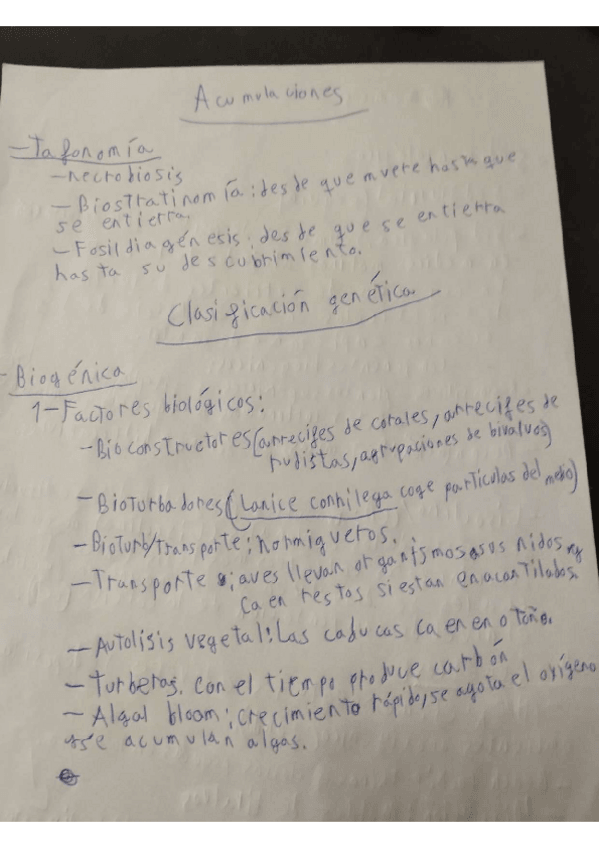 Acumulaciones
-Tafonomía
-necrobiosis
-Biostratinomía: desde que muere hasta que
se entierra.
-Fosildiagénesis: desde que se entierra
hasta su descubrimiento.
Clasificación genética
-Biogénica
1-Factores biológicos:
-Bioconstructores (arrecifes de corales, arrecifes de
rudistas, agrupaciones de bivalvos)
-Bioturbadores (Lanice conhilega coge partículas del medio)
-Bioturb/transporte: hormigueros.
-Transporte: aves llevan organismos a sus nidos y
caen restos si estan en acantilados.
-Autolisis vegetal: Las caducas caen en otoño.
-Turberas. con el tiempo produce carbón
-Algal bloom: crecimiento rápido, se agota el oxígeno
y se acumulan algas.